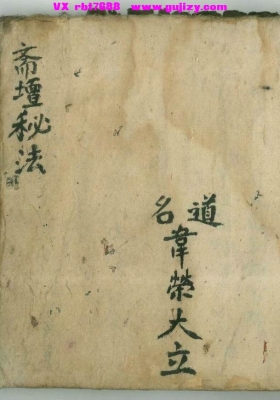 VX rbt7688  www.gujizy.com
斋壇秘法
道名
韋榮大立